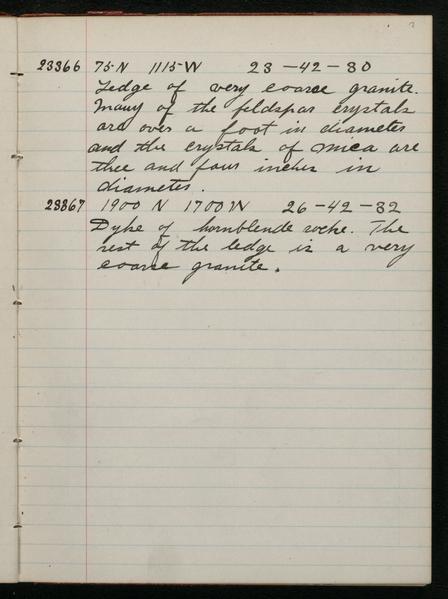 23366 75 N 1115 W 23-42-30
Ledge of very coarse granite.
Many of the feldspar crystals
are over a foot in diameter
and the crystals of mica are
thee and four inches in
diameter.
23367 1900 N 1700 W 26-42-32
Dyke of hornblende rocke. The
rest of the ledge is a very
coarse granite.